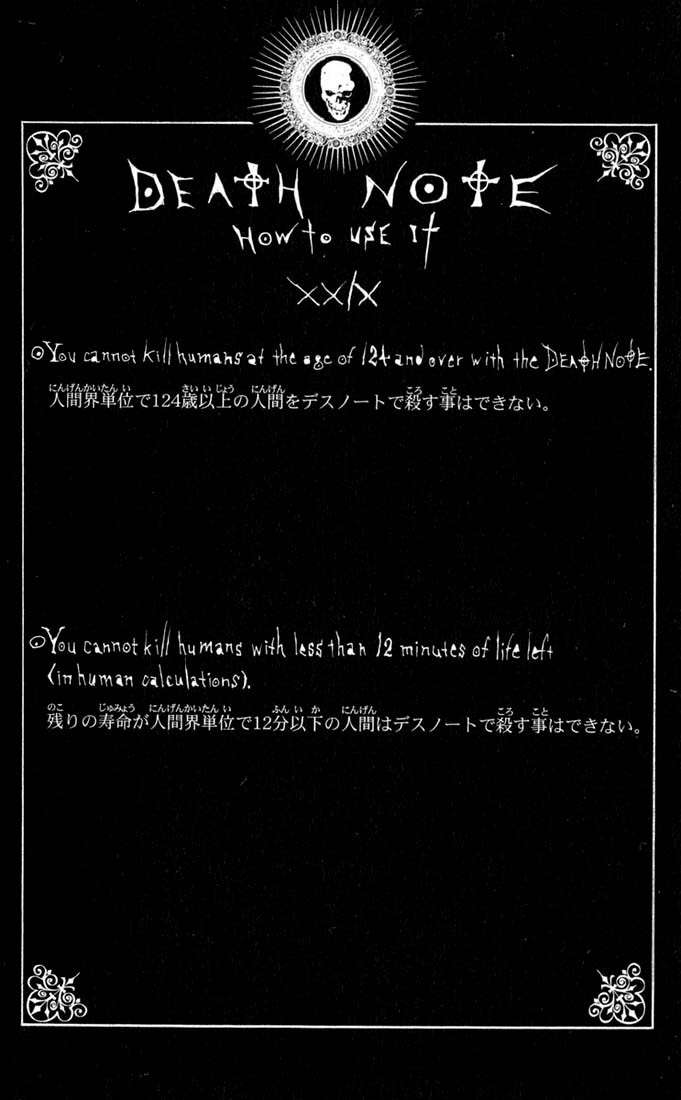 DEATH NOTE
HOW TO USE IT
XXIX
You cannot kill humans at the age of 124 and over with the DEATH NOTE.
人間界単位で124歳以上の人間をデスノートで殺す事はできない。
You cannot kill humans with less than 12 minutes of life left
(in human calculations).
残りの寿命が人間界単位で12分以下の人間はデスノートで殺す事はできない。